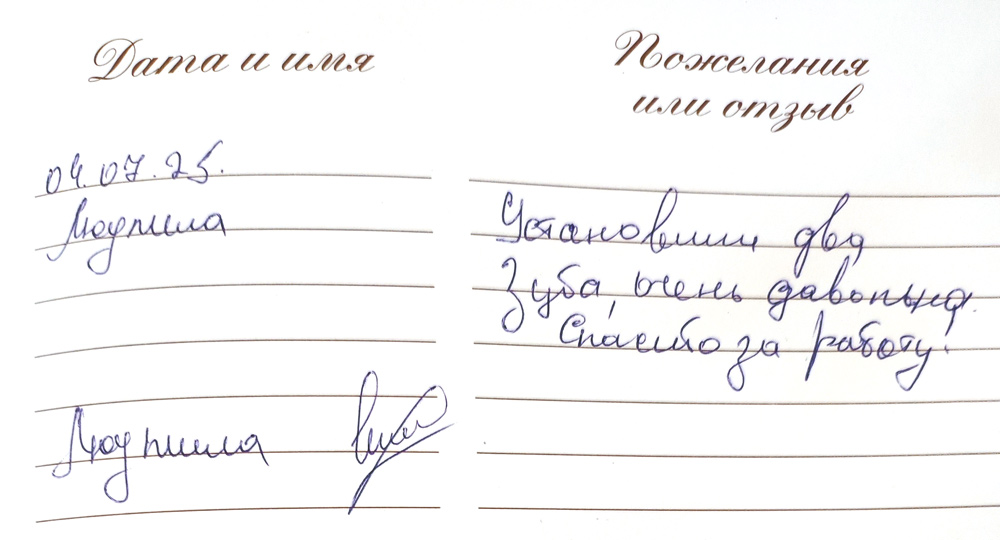 Дата и имя
Пожелания
или отзыв
04.07.25.
Людмила
Установили два
зуба, очень давольна.
Спасибо за работу!
Людмила